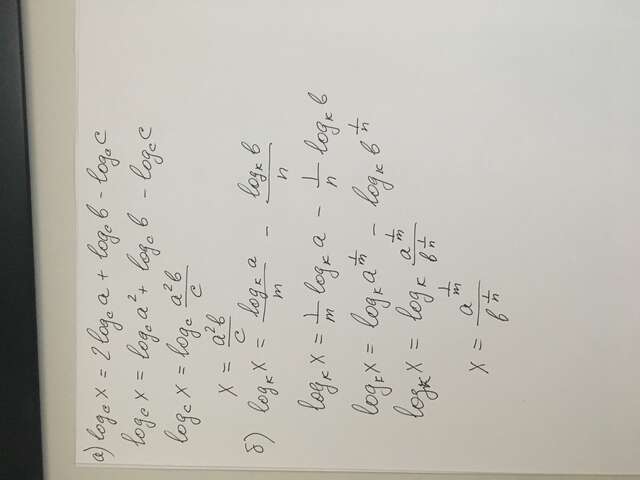 а) log_c x = 2log_c a + log_c b - log_a c
log_c x = log_c a² + log_c b - log_c c
log_c x = log_c a²b/c
x = a²b/c
б) log_к x = log_к a/m - log_к b/n
log_к x = 1/m log_к a - 1/n log_к b
log_к x = log_к a^(1/m) - log_к b^(1/n)
log_к x = log_к a^(1/m)/b^(1/n)
x = a^(1/m)/b^(1/n)